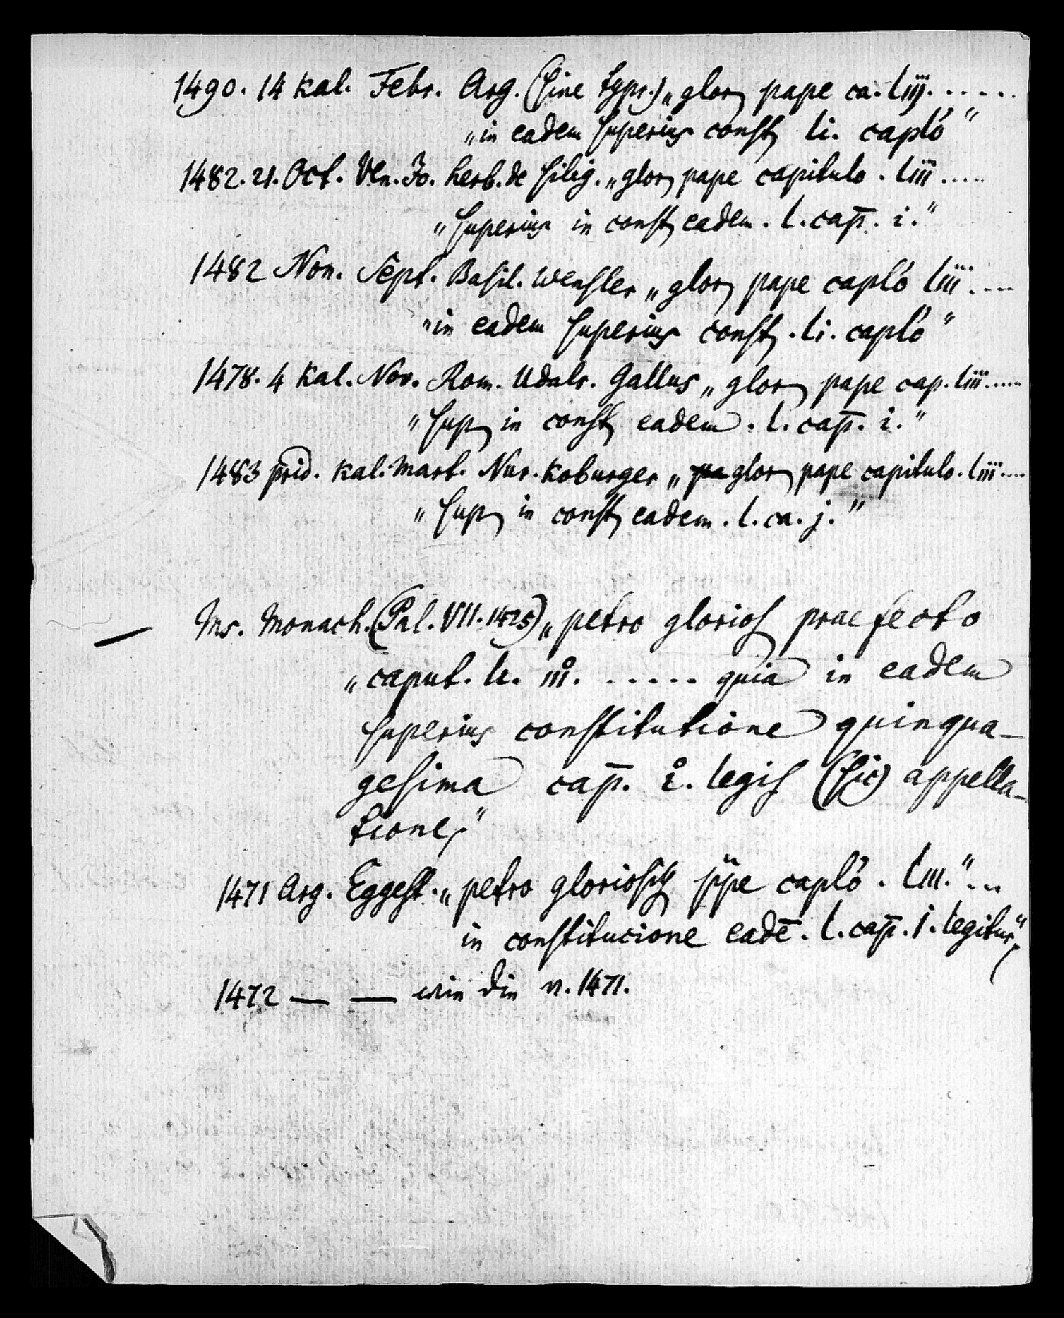 1490. 14 kal. Febr. Arg. (sine typr.) „glor pape ca. liij. . . . . .
„in eadem superius const li. capło"
1482. 21. Oct. Ven. Jo. herb. de silig. „glor pape capitulo . liii .....
„superius in const eadem . l. cap̄. i."
1482 Non. Sept. Basil. Wensler „glor pape capló liii ....
„in eadem superius const . li. capló"
1478. 4 kal. Nov. Rom. Udalr. Gallus „glor pape cap. liii.....
„sup in const eadem . l. cap̄. i."
1483 prid. kal. Mart. Nur. Koburger „glor pape capitulo. liii....
„sup in const eadem. l. ca. j."
Ms. Monach. (Pal. VII. 1425) „petro glorios praefecto
„caput. le. iii. . . . . . quia in eadem
superius constitutione quinqua-
gesima cap̄. i. legis (sic) appella-
tiones"
1471 Arg. Eggest. „petro glorioss ppe capló. liii." ...
in constitucione eadē. l. cap̄. i. legitur"
1472 — — wie die v. 1471.